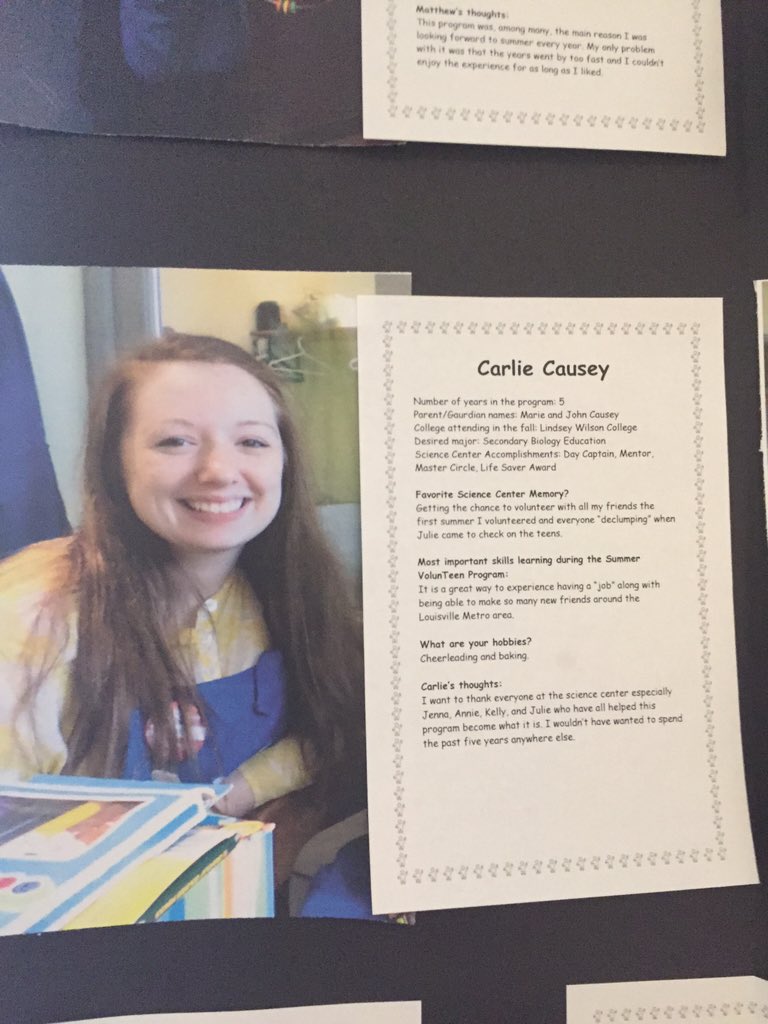 Matthew's thoughts:
This program was, among many, the main reason I was
looking forward to summer every year. My only problem
with it was that the years went by too fast and I couldn't
enjoy the experience for as long as I liked.
Carlie Causey
Number of years in the program: 5
Parent/Gaurdian names: Marie and John Causey
College attending in the fall: Lindsey Wilson College
Desired major: Secondary Biology Education
Science Center Accomplishments: Day Captain, Mentor,
Master Circle, Life Saver Award
Favorite Science Center Memory?
Getting the chance to volunteer with all my friends the
first summer I volunteered and everyone "declumping" when
Julie came to check on the teens.
Most important skills learning during the Summer
VolunTeen Program:
It is a great way to experience having a "job" along with
being able to make so many new friends around the
Louisville Metro area.
What are your hobbies?
Cheerleading and baking.
Carlie's thoughts:
I want to thank everyone at the science center especially
Jenna, Annie, Kelly, and Julie who have all helped this
program become what it is. I wouldn't have wanted to spend
the past five years anywhere else.